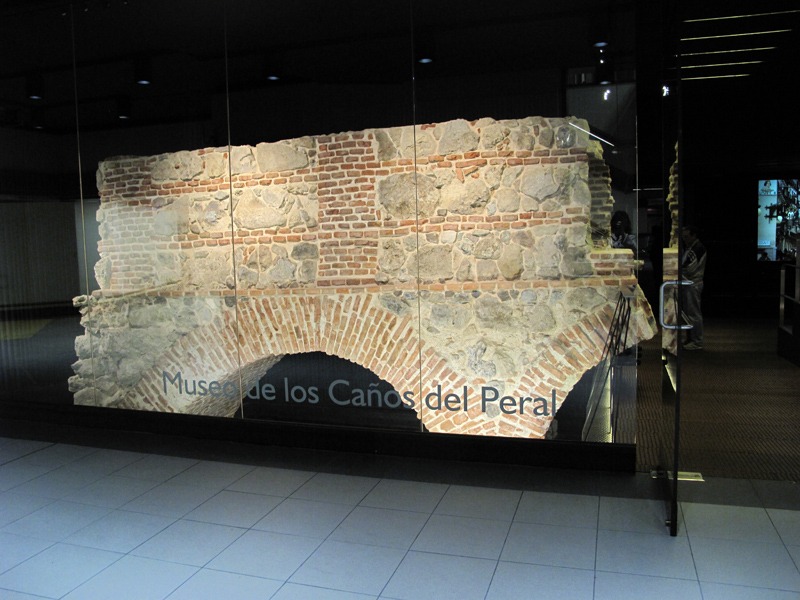 Museo de los Caños del Peral